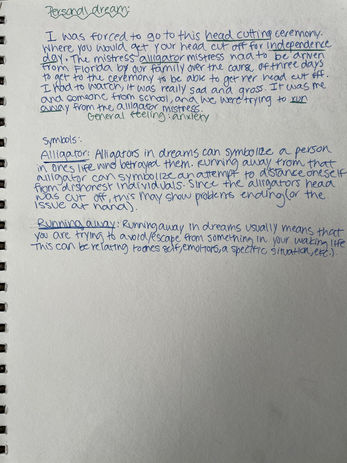 Personal dream:
I was forced to go to this head cutting ceremony.
Where you would get your head cut off for independence
day. The mistress alligator mistress had to be driven
from Florida by our family over the course of three days
to get to the ceremony to be able to get her head cut off.
I had to watch, it was really sad and gross. It was me
and someone from school, and we were trying to run
away from the alligator mistress.
General feeling: anxiety
Symbols:
Alligator: Alligators in dreams can symbolize a person
in ones life who betrayed them. Running away from that
alligator can symbolize an attempt to distance oneself
from dishonest individuals. Since the alligators head
was cut off, this may show problems ending (or the
issue at hand).
Running away: Running away in dreams usually means that
you are trying to avoid/escape from something in your waking life
This can be relating to ones self, emotions, a specific situation, etc.).